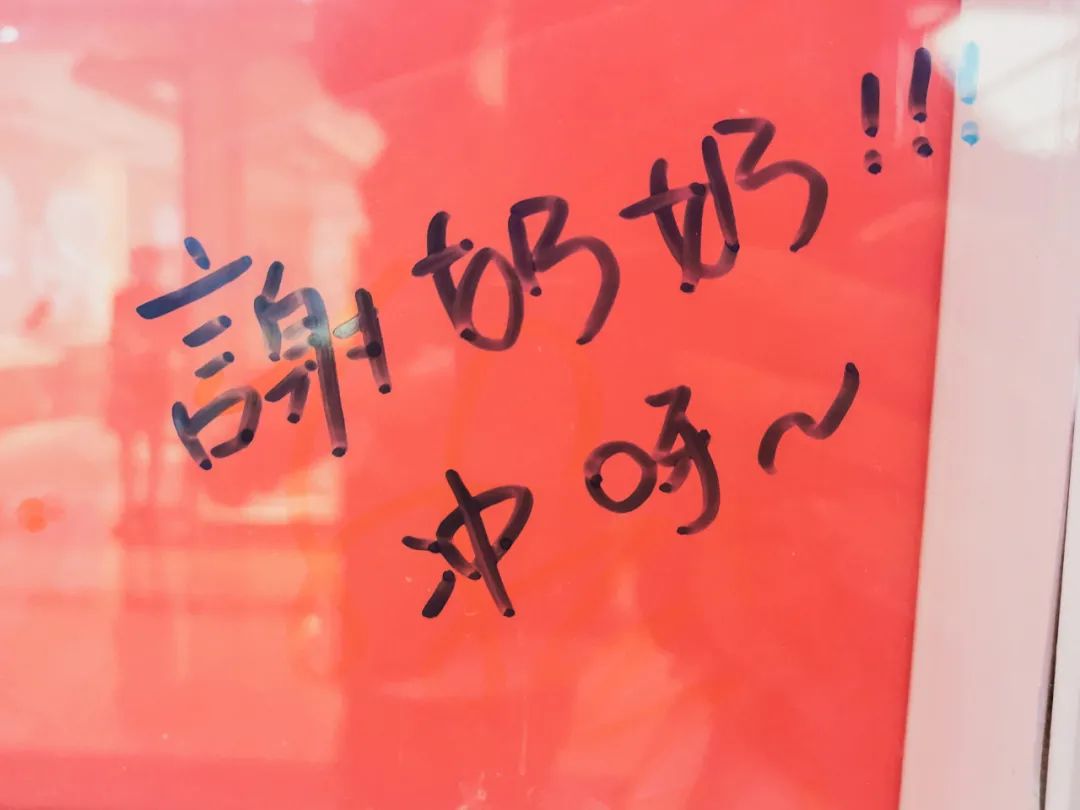 謝奶奶!!!
冲呀~